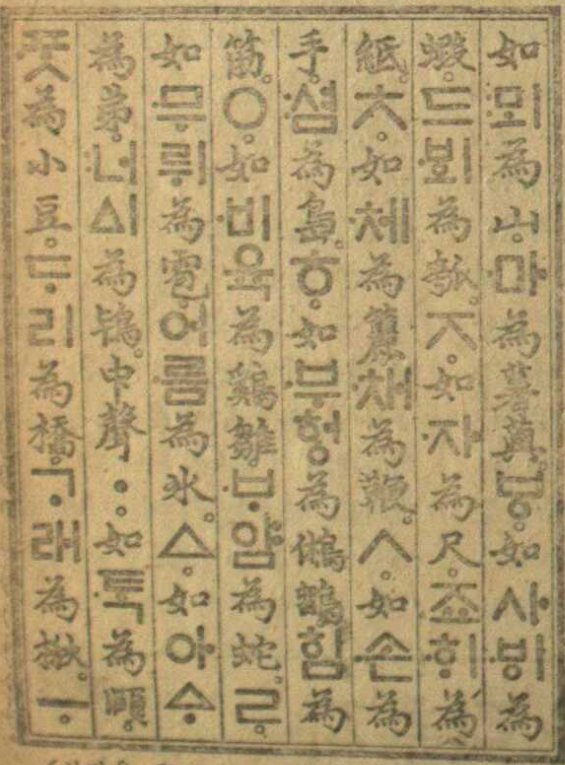 如:뫼為山。·마為薯藇。ㅸ。如사·ᄫᅵ為
蝦。드·ᄫᅴ為瓠。ㅈ。如·자為尺。죠·ᄒᆡ為
紙。ㅊ。如·체為籭。·채為鞭。ㅅ。如·손為
手。:셤為島。ㅎ。如·부헝為鵂鶹。·힘為
筋。ㅇ。如·비육為鷄雛。·ᄇᆞ얌為蛇。ㄹ。
如·무뤼為雹。어·름為氷。ㅿ。如아ᅀᆞ
為弟。:너ᅀᅵ為鴇。中聲ㆍ。如·ᄐᆞᆨ為頤。
·ᄑᆞᆺ為小豆。ᄃᆞ리為橋。·ᄀᆞ래為楸。ㅡ。